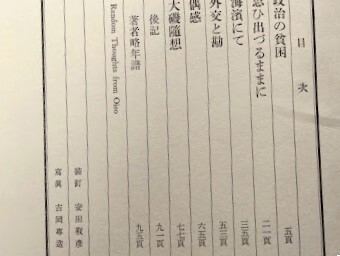 目次
政治の貧困 五頁
思ひ出づるままに 二一頁
海濱にて 三五頁
外交と勘 五三頁
偶感 六五頁
大磯隨想 七七頁
後記 九一頁
著者略年譜 九五頁
Random Thoughts from Oiso
裝釘 安田靫彥
寫眞 吉岡專造